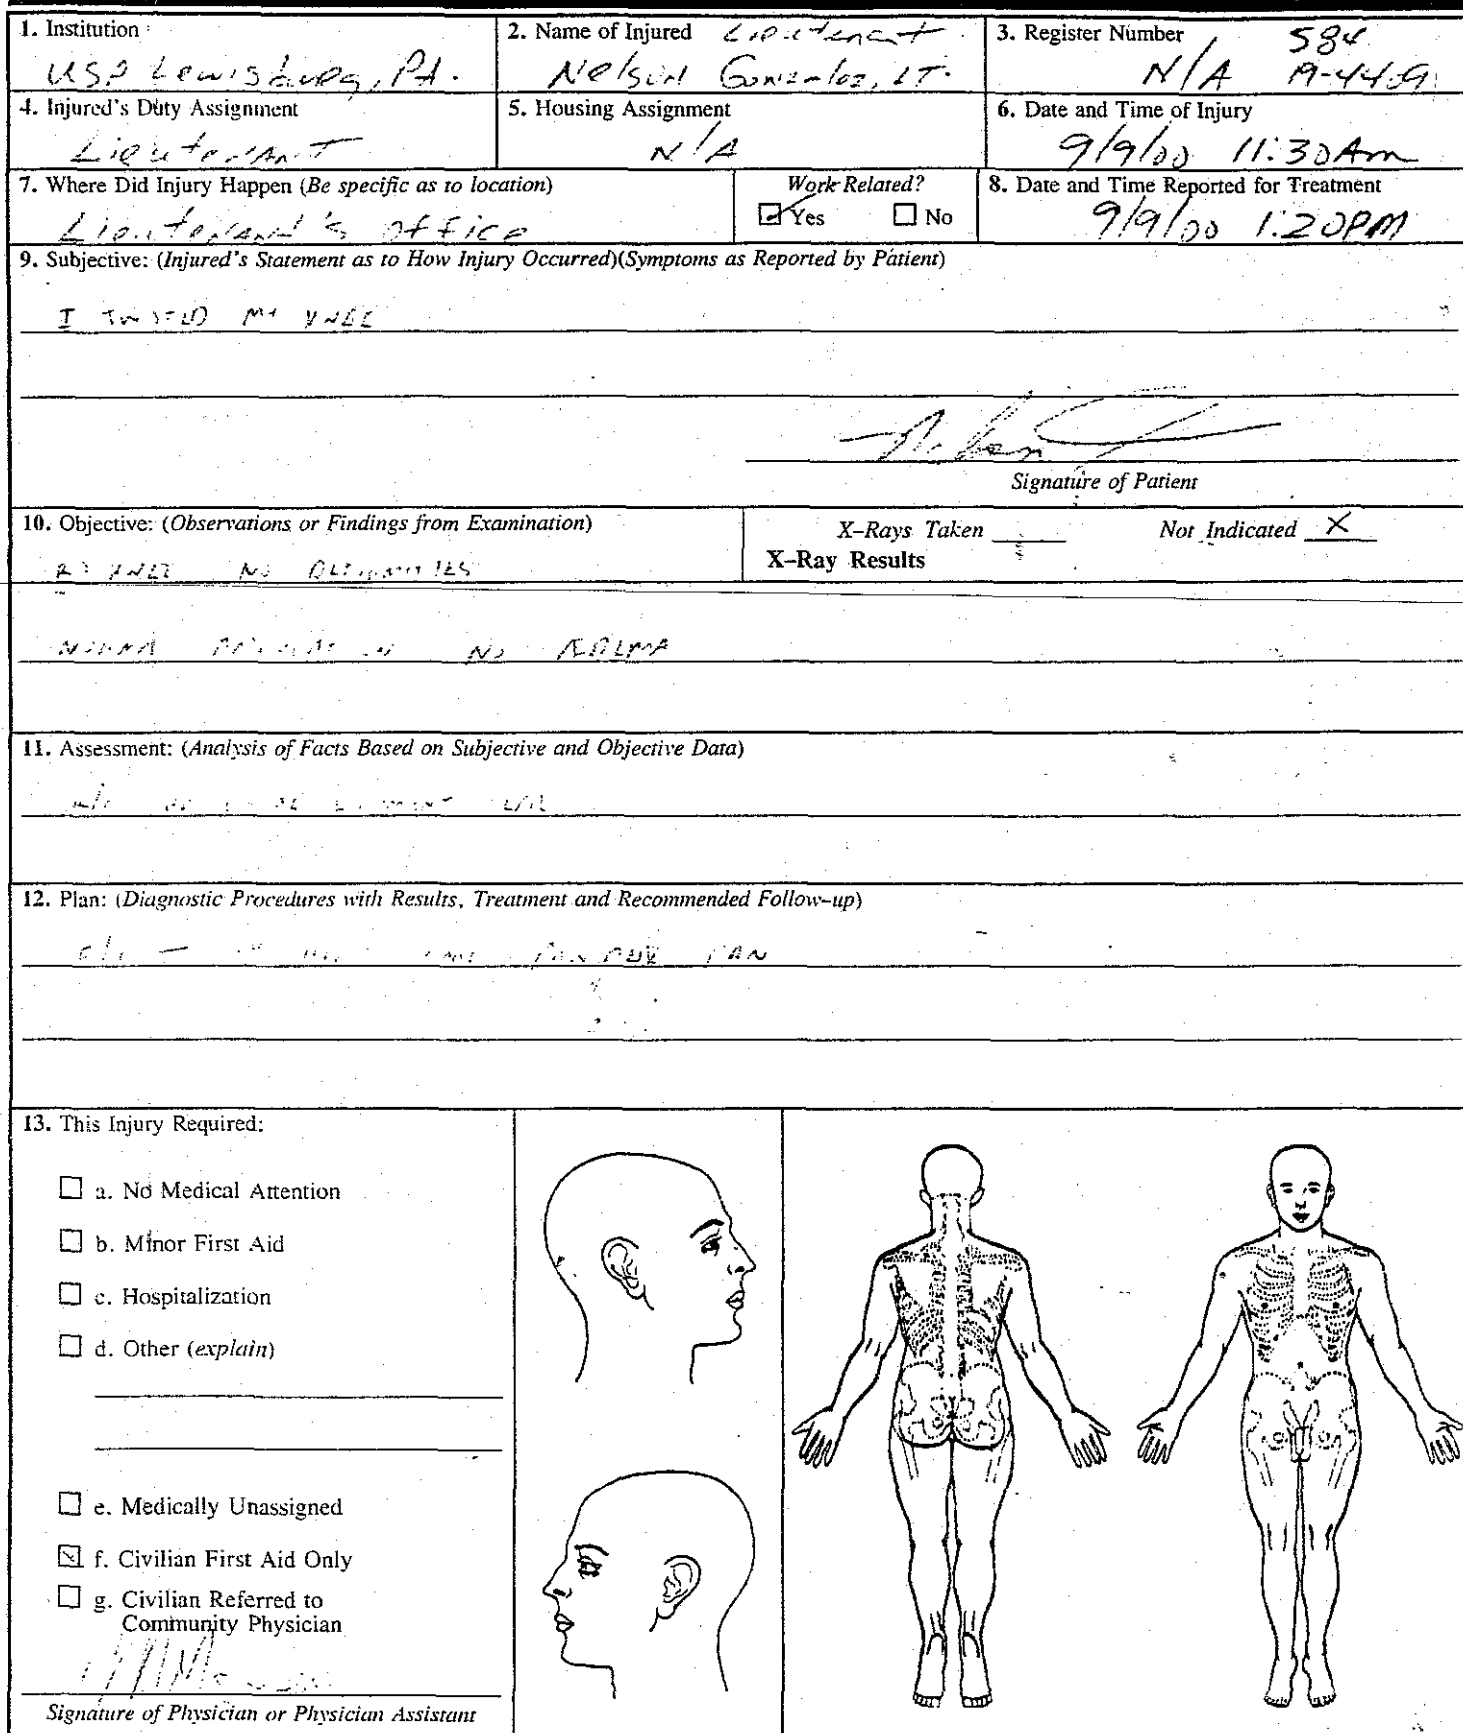 1. Institution
USP Lewisburg, PA.
2. Name of Injured Lieutenant
Nelson Gonzalez, LT.
3. Register Number 584
N/A
4. Injured's Duty Assignment
Lieutenant
5. Housing Assignment
N/A
6. Date and Time of Injury
9/9/00 11:30Am
7. Where Did Injury Happen (Be specific as to location)
Lieutenant's office
Work Related?
Yes No
8. Date and Time Reported for Treatment
9/9/00 1:20PM
9. Subjective: (Injured's Statement as to How Injury Occurred)(Symptoms as Reported by Patient)
I TWISTED MY KNEE
Signature of Patient
10. Objective: (Observations or Findings from Examination)
KNEE NO
X-Rays Taken Not Indicated X
X-Ray Results
NO
11. Assessment: (Analysis of Facts Based on Subjective and Objective Data)
12. Plan: (Diagnostic Procedures with Results, Treatment and Recommended Follow-up)
13. This Injury Required:
a. No Medical Attention
b. Minor First Aid
c. Hospitalization
d. Other (explain)
e. Medically Unassigned
f. Civilian First Aid Only
g. Civilian Referred to
Community Physician
Signature of Physician or Physician Assistant